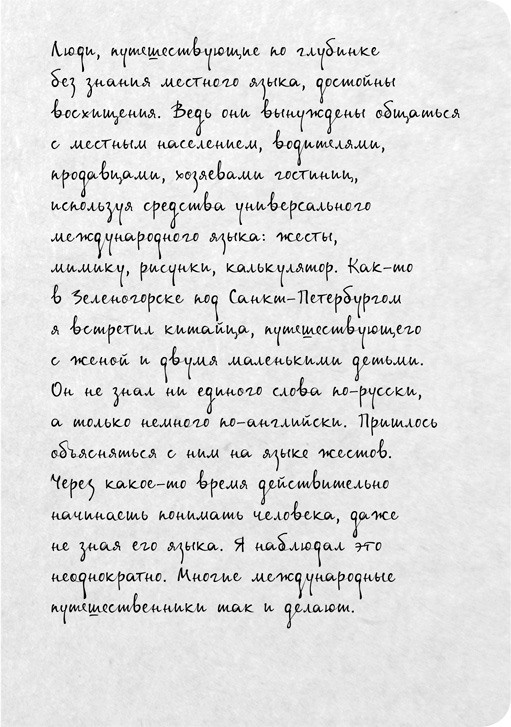 Люди, путешествующие по глубинке
без знания местного языка, достойны
восхищения. Ведь они вынуждены общаться
с местным населением, водителями,
продавцами, хозяевами гостиниц,
используя средства универсального
международного языка: жесты,
мимику, рисунки, калькулятор. Как-то
в Зеленогорске под Санкт-Петербургом
я встретил китайца, путешествующего
с женой и двумя маленькими детьми.
Он не знал ни единого слова по-русски,
а только немного по-английски. Пришлось
объясняться с ним на языке жестов.
Через какое-то время действительно
начинаешь понимать человека, даже
не зная его языка. Я наблюдал это
неоднократно. Многие международные
путешественники так и делают.